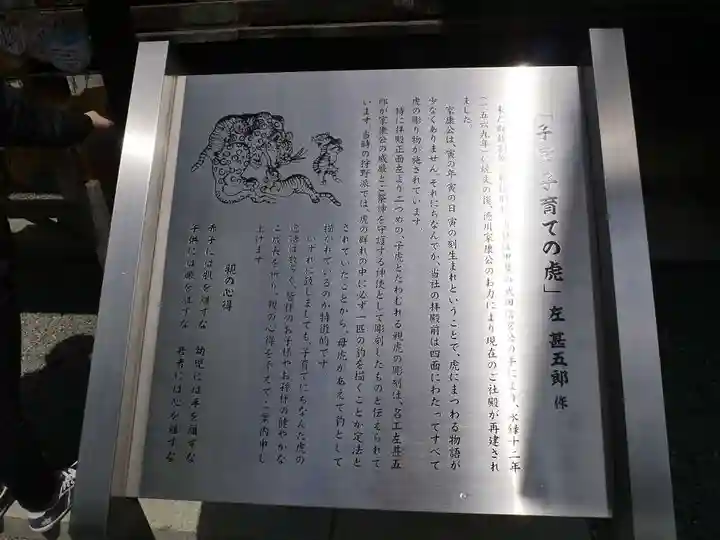 「子宝 子育ての虎」 左 甚五郎 作
の手により、永禄十二年
(一五六九年)に焼失の後、徳川家康公のお力により現在のご社殿が再建され
ました。
家康公は、寅の年、寅の日、寅の刻生まれということで、虎にまつわる物語が
少なくありません。それにちなんでか、当社の拝殿前は四面にわたってすべて
虎の彫り物が施されています
特に拝殿正面左より二つめの、子虎とたわむれる親虎の彫刻は、名工左甚五
郎が家康公の威厳とご祭神を守護する神使として彫刻したものと伝えられて
います。当時の狩野派では、虎の群れの中に必ず一匹の豹を描くことが定法と
されていたことから、母虎があえて豹として
描かれているのが特徴的です
いずれに致しましても、子育てにちなんだ虎の
皆様のお子様やお孫様の健やかな
ご成長を祈り、親の心得を下にてご案内申し
上げます
親の心得
赤子には肌を離すな 幼児には手を離すな
子供には眼を離すな 若者には心を離すな